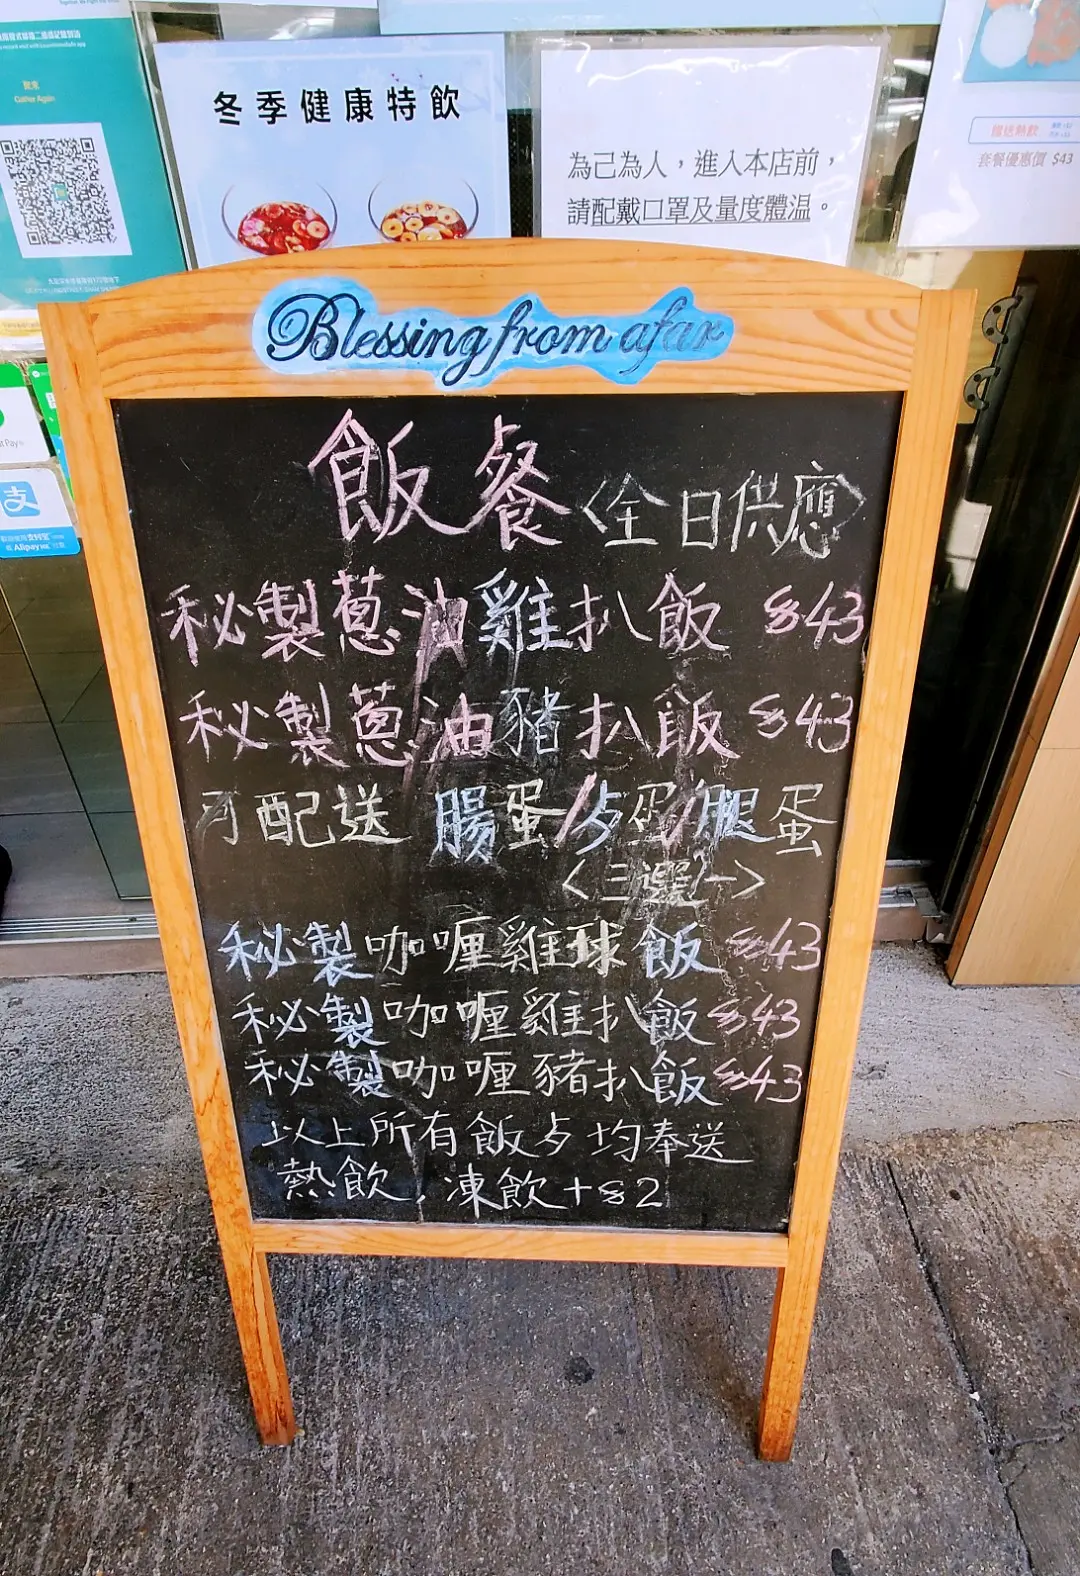 Gather Again
冬季健康特飲
為己為人，進入本店前，
請配戴口罩及量度體温。
隨送熱飲
套餐優惠價 $43
Blessing from afar
飯餐<全日供應>
秘製蔥油雞扒飯 $43
秘製蔥油豬扒飯 $43
可配送 腸蛋/歺蛋/腿蛋
<三選一>
秘製咖喱雞球飯 $43
秘製咖喱雞扒飯 $43
秘製咖喱豬扒飯 $43
以上所有飯歺均奉送
熱飲，凍飲+$2
支
Alipay